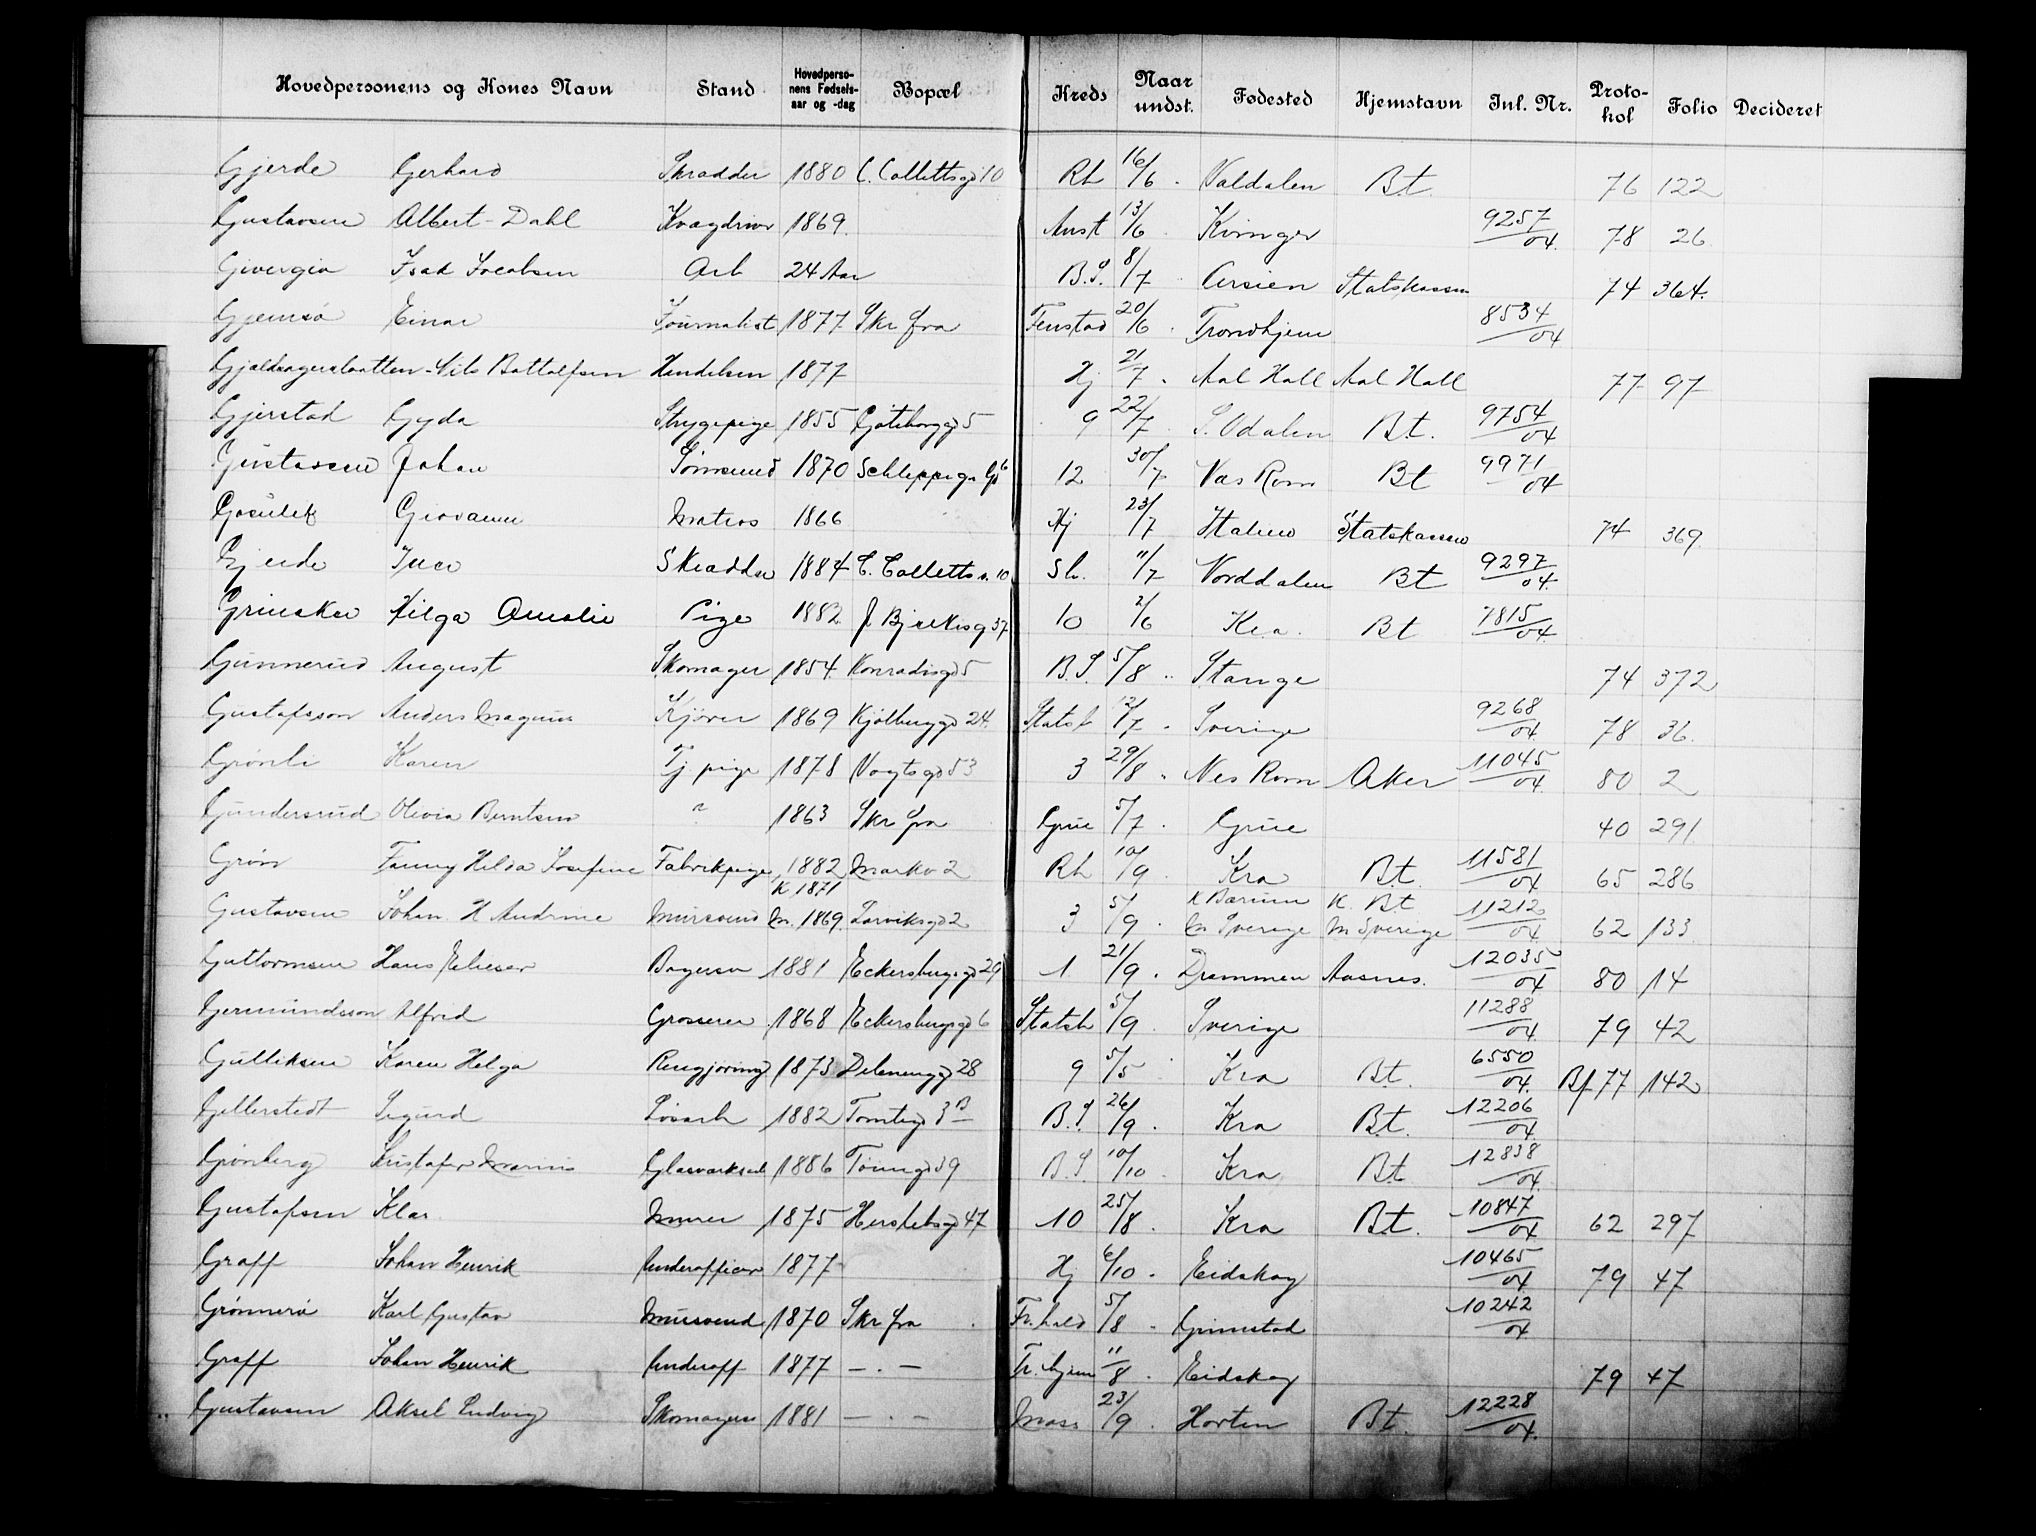 Hovedpersonens og Kones Navn Stand Hovedpersonens Fødselsaar og -dag Bopæl Kreds Naar undst. Fødested Hjemstavn Inl. Nr. Protokol Folio Decideret
Gjerde Gerhard Skrædder 1880 C. Collettsgd 10 Rh 16/6 Valdalen Bt. 76 122
Gustavsen Albert Dahl Kvægdriver 1869. Anst 13/6 Kvinger 9257/04. 78 26
Givergia Isak Jacobsen Arb 24 Aar B.S. 8/7 Statskassen 74 364.
Gjemsø Einar Journalist 1877 Skr fra Fenstad 20/6 Trondhjem 8534/04
Gjeldsagerslaatten Nils Bottolfsen Handelsm 1877 Hj 21/7 Aal Hall Aal Hall 77 97
Gjerstad Gyda Strygepige 1855 Gøteborggd 5 9 22/7 S. Odalen Bt. 9754/04
Gustavsen Johan Tømmermd 1870 Schleppegr Gd 6 12 30/7 Næs Rom Bt 9971/04
Giovanni Matros 1866 Hj 23/7 Italien Statskassen 74 369.
Gjerde Skrædder 1884 C. Colletts g. 10 Sk. 11/7 Norddalen Bt 9297/04.
Helga Amalie Pige 1882 J. Bjelkesg 37 10 2/6 Kra. Bt 7815/04.
Gunnerud August Skomager 1854 Konradisgd 5 B.S. 5/8 Stange 74 372
Gustafsson Anders Magnus Kjører 1869 Kjølberggd 24. Statsk 12/7 Sverige 9268/04. 78 36.
Grønli Karen Tj. pige 1878 Vogtsgd 53 3 29/8 Nes Rom Aker 11045/04. 80 2
Gundersrud Olivia Berntsen " 1863 Skr fra Grue 5/7 Grue 40 291
Grøn Fanny Hilda Josefine Fabrikpige 1882 Markv 2 Rh 10/9 Kra Bt. 11581/04 65 286
Gustavsen Johan H Andrine Mursvend K 1871 M. 1869. Larviksgd 2 3 5/9 K Bærum M Sverige K. Bt M Sverige 11212/04. 62 133
Guttormsen Hans Elieser Bagersv 1881 Eckersbergsgd 29 1 21/9 Drammen Aasnes. 12035/04 80 14
Germundsson Alfred Grosserer 1868 Eckersbergsgd 6 Statsk 5/9 Sverige 11288/04. 79 42
Gulliksen Karen Helga Rengjøring 1873 Delenenggd 28 9 5/5 Kra Bt. 6550/04. Bf 77 142
Gellerstedt Sigurd Løsarb 1882 Tomtegd 3 B B.S. 26/9 Kra Bt. 12206/04.
Gustafva Marinis Glasværksarb 1886 Tøiengd 39 B.S. 10/10 Kra Bt 12838/04.
Gustafsen Klas. Murer 1875 Herslebsgd 47 10 25/8 Kra Bt. 10847/04 62 297
Graff Johan Henrik Underofficer 1877 Hj 6/10 Eidskog 10465/04. 79 47
Grønnerø Karl Gustav Mursvend 1870 Skr fra Fr.hald 5/8 Grimstad 10242/04.
Graff Johan Henrik Underoff 1877 — . — Tr.hjem 11/8 Eidskog 79 47
Gustavsen Aksel Ludvig Skomagers 1881 — . — Moss 23/9 Horten Bt. 12228/04.